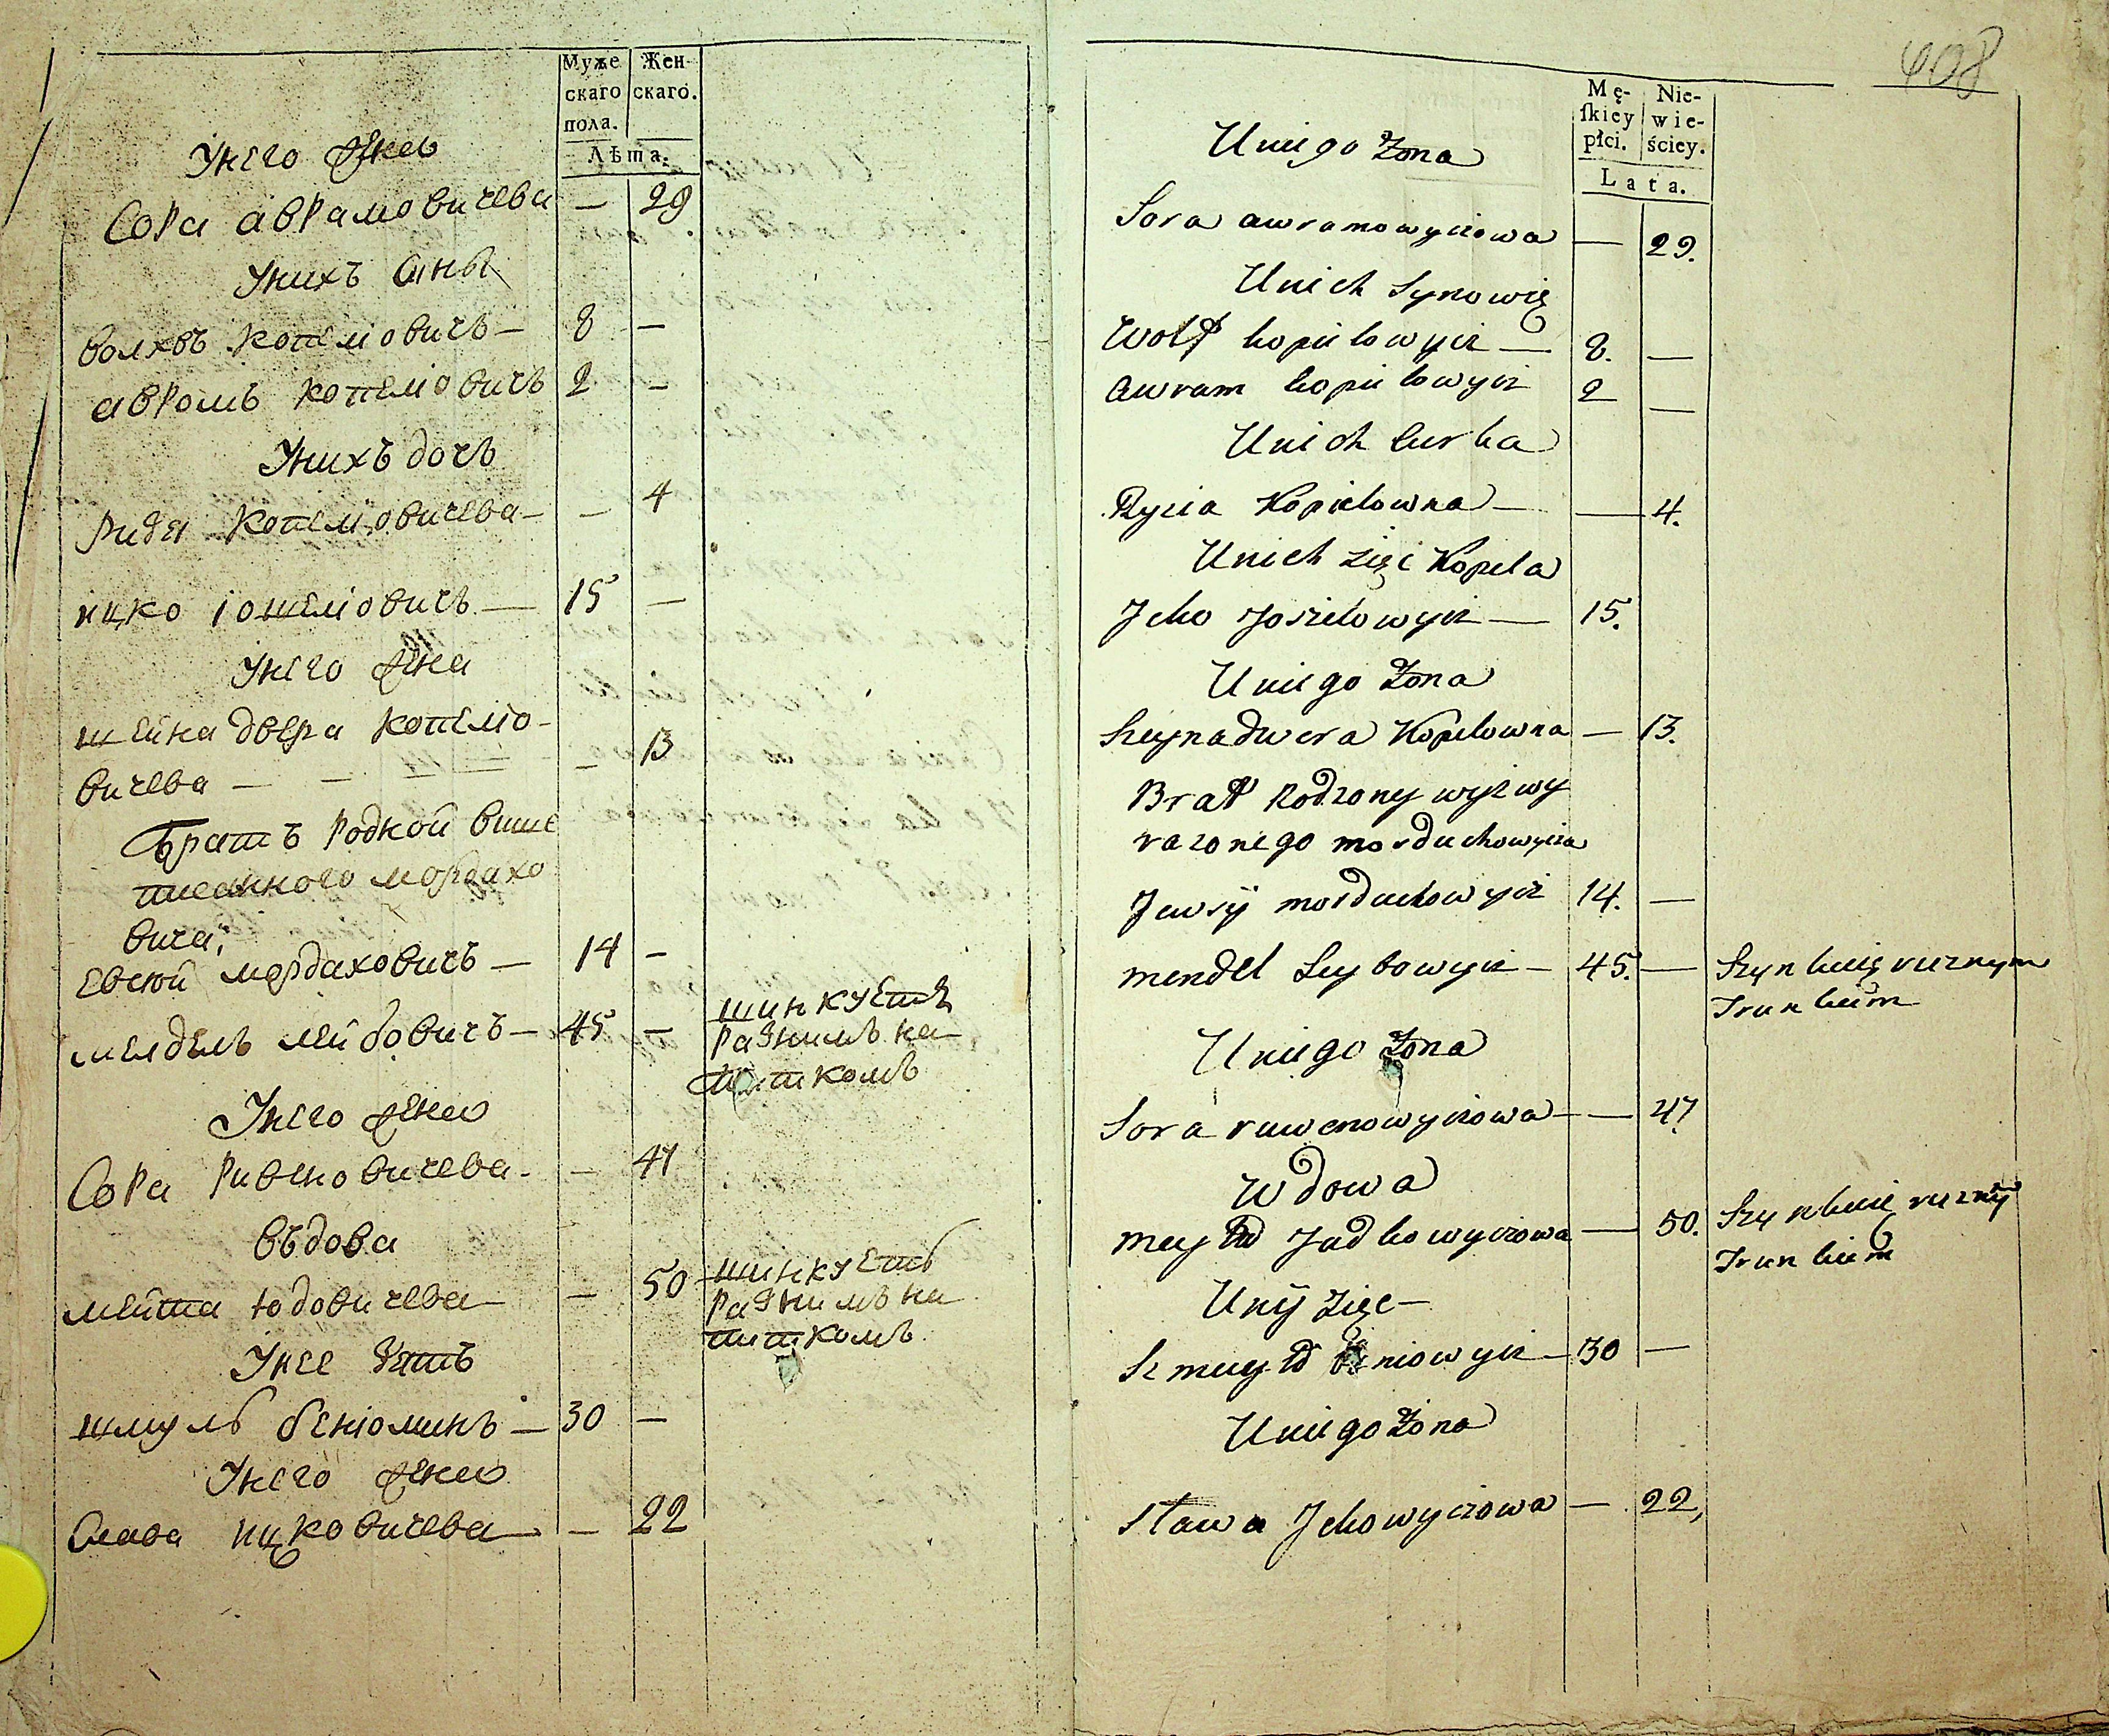 Муже
скаго
пола.
Жен-
скаго.
Лѣта.
Унего жена
Сора аврамовичева — 29
Унихъ сыны
волхвъ копелiовичъ — 8 —
авромъ копелiовичъ 2 —
Унихъ дочь
ридя копелiовичева — — 4
ицко iошелiовичъ — 15 —
Унего жена
шейна двера копелiо-
вичева — — — 13
Братъ родной више
писанного мордахо
вича,
Евсей мордаховичъ — 14 —
мендель лейбовичъ — 45 — шинкуетъ
разнимъ на
питкомъ
Унего жена
Сора рувеновичева — — 47
въдова
мейта юдовичева — 50 шинкуетъ
разнимъ на
питкомъ
Унее зять
шмуль бенiоминъ — 30 —
Унего жена
Слава ицковичева — — 22
408
Mę-
skiey
płci.
Nie-
wie-
ściey.
Lata.
Uniego Żona
Sora awramowyczowa — 29.
Unich Synowię
Wolf kopielowycz — 8. —
awram kopielowycz 2 —
Unich Curka
Rycia Kopielowna — — 4.
Unich zięć Kopela
Icko Joszielowycz — 15.
Uniego Żona
Szeynadwera Kopelowna — 13.
Brat Rodzony wyżwy
razonego morduchowycza
Jewsÿ morduchowycz 14. —
mendel Leybowycz — 45. — Szynkuię rużnym
Trunkiem
Uniego Żona
Sora ruwenowyczowa — — 47.
Wdowa
Judkowyczowa — 50. Szynkuię rużnÿ
Trunkiem
Unÿ Zięć —
30 —
Uniego Żona
Sława Ickowyczowa — 22,